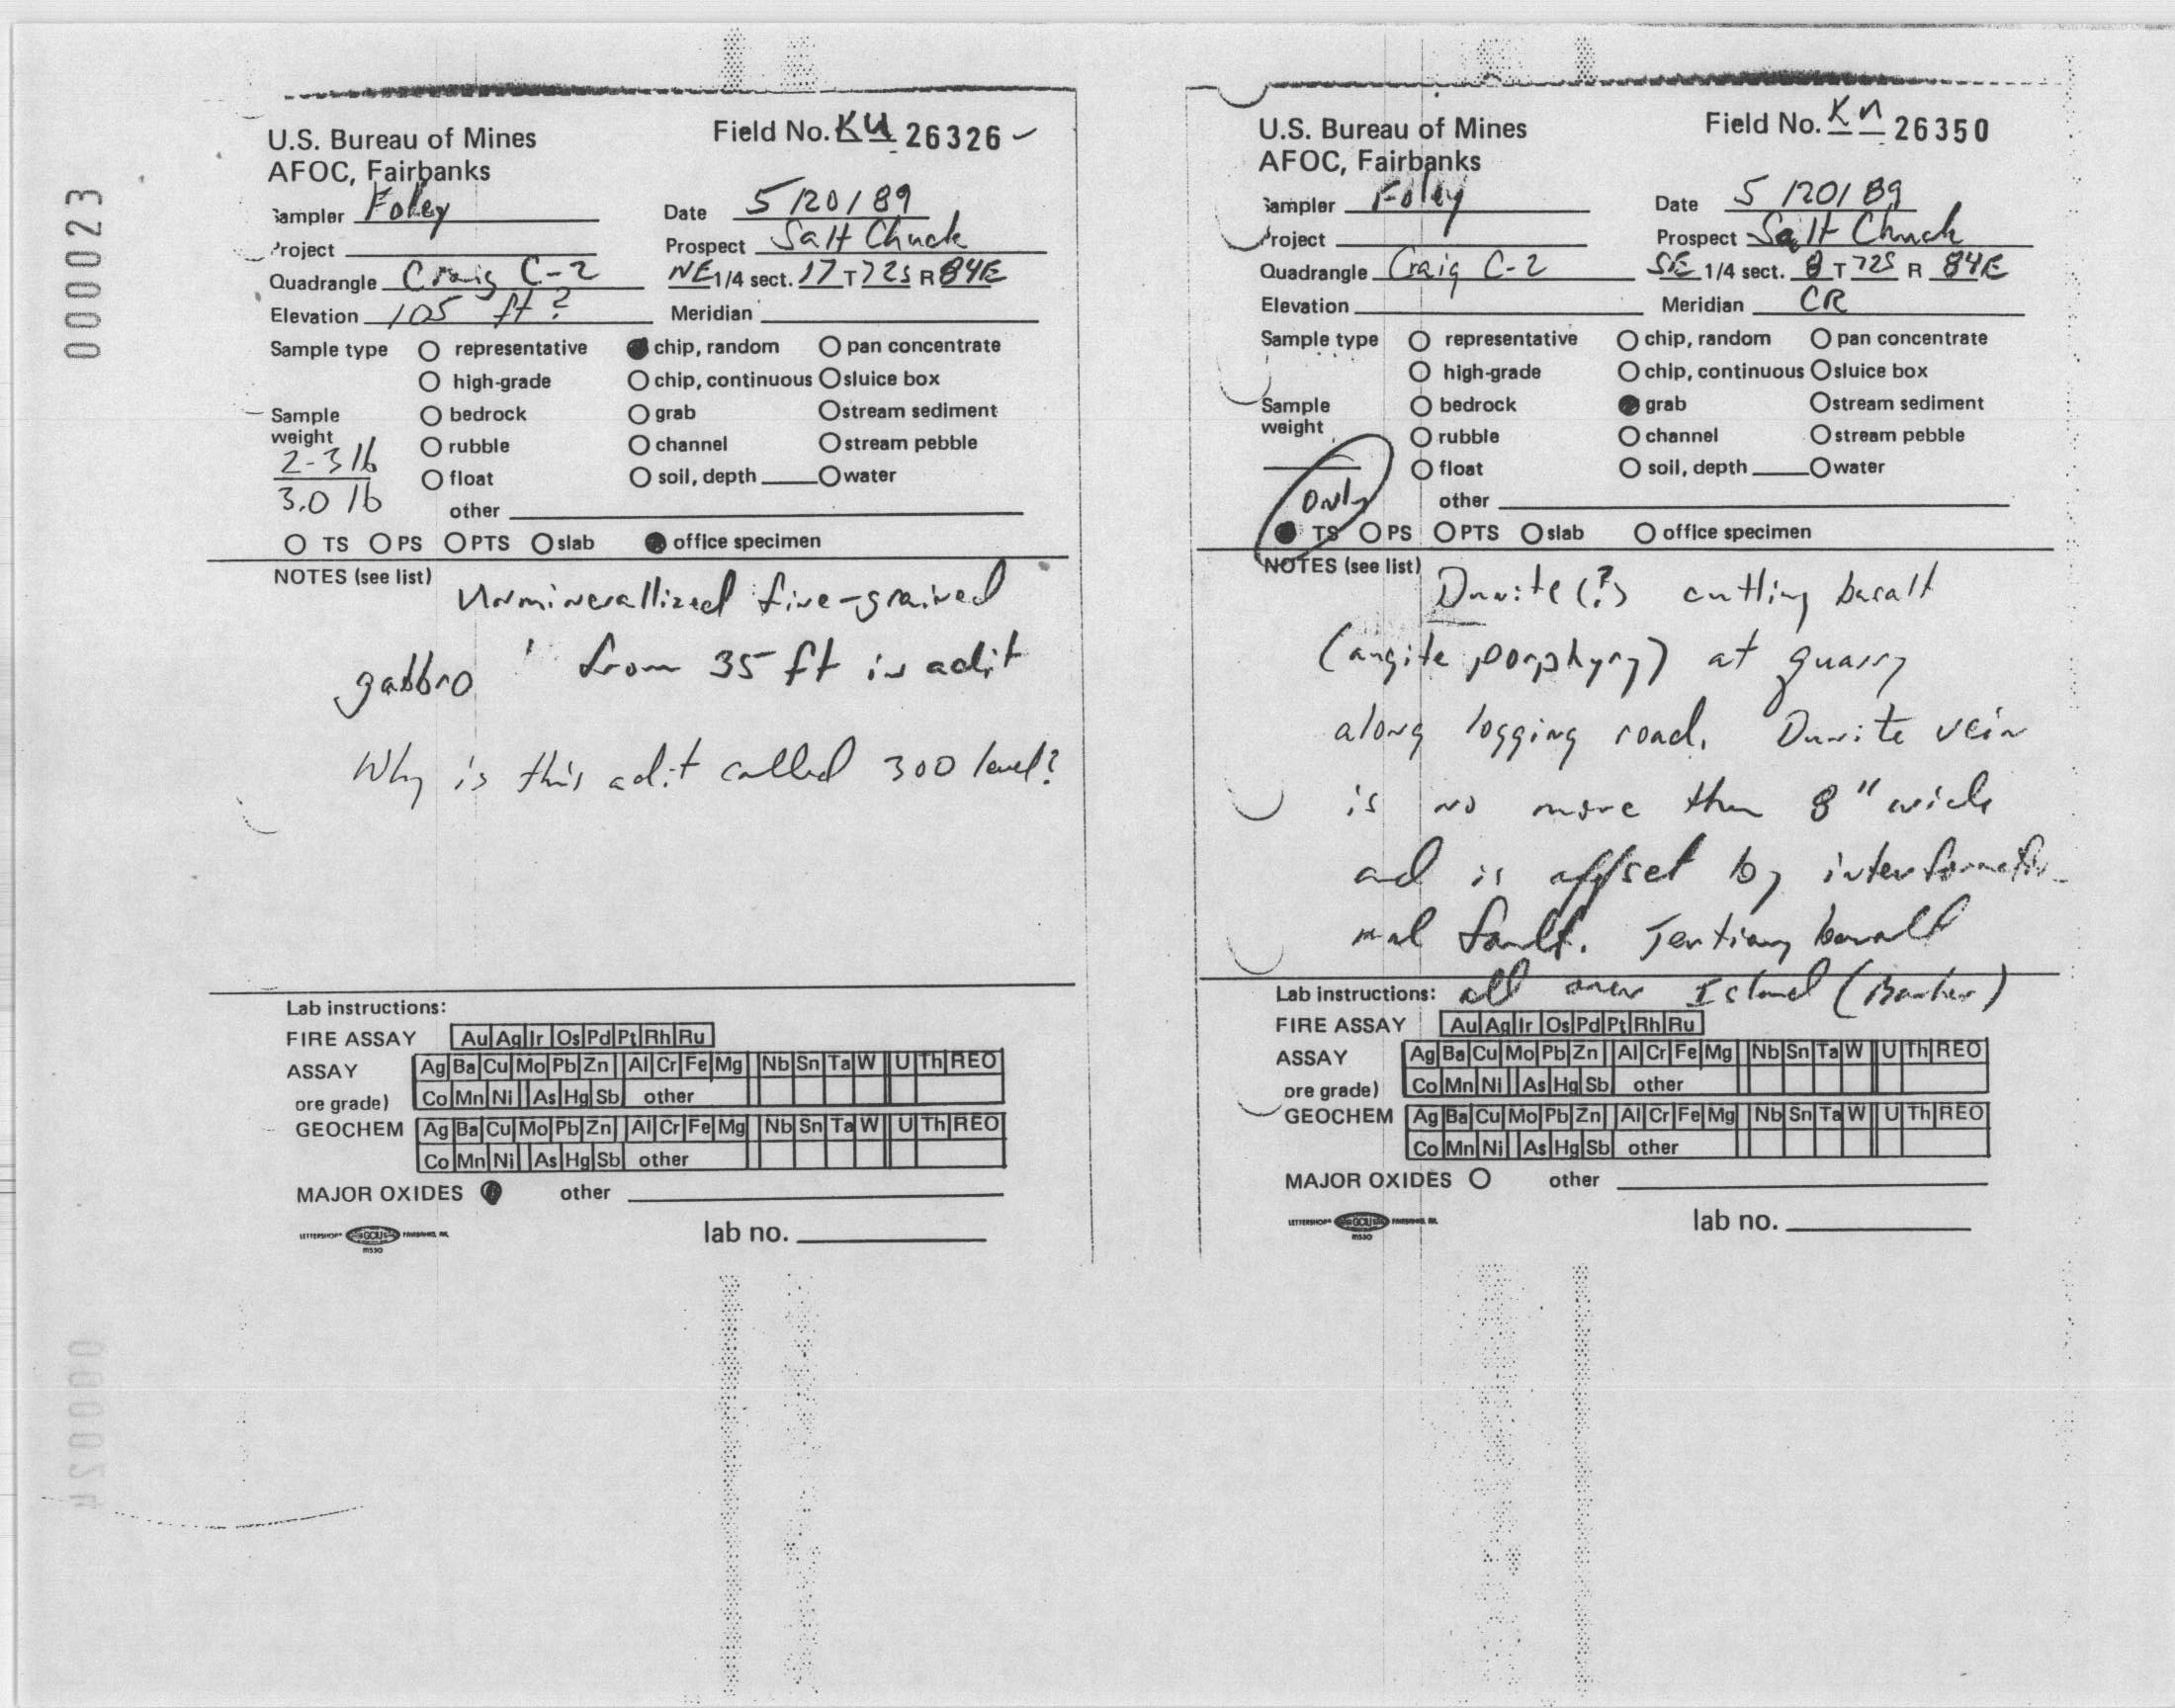 000023
U.S. Bureau of Mines
AFOC, Fairbanks
Field No. KU 26326
Sampler Foley
Date 5/20/89
Project
Prospect Salt Chuck
Quadrangle Craig C-2
NE 1/4 sect. 17 T 72S R 84E
Elevation 105 ft?
Meridian
Sample type
representative
chip, random
pan concentrate
high-grade
chip, continuous
sluice box
Sample
weight
2-3 lb
3.0 lb
bedrock
grab
stream sediment
rubble
channel
stream pebble
float
soil, depth
water
other
TS PS PTS slab office specimen
NOTES (see list)
Unminerallized fine-grained
gabbro from 35 ft in adit
Why is this adit called 300 level?
Lab instructions:
FIRE ASSAY Au Ag Ir Os Pd Pt Rh Ru
ASSAY Ag Ba Cu Mo Pb Zn Al Cr Fe Mg Nb Sn Ta W U Th REO
ore grade) Co Mn Ni As Hg Sb other
GEOCHEM Ag Ba Cu Mo Pb Zn Al Cr Fe Mg Nb Sn Ta W U Th REO
Co Mn Ni As Hg Sb other
MAJOR OXIDES other
LETTERSHOP GCIU FAIRBANKS, AK.
lab no.
U.S. Bureau of Mines
AFOC, Fairbanks
Field No. Kn 26350
Sampler Foley
Date 5/20/89
Project
Prospect Salt Chuck
Quadrangle Craig C-2
SE 1/4 sect. 8 T 72S R 84E
Elevation
Meridian CR
Sample type
representative
chip, random
pan concentrate
high-grade
chip, continuous
sluice box
Sample
weight
bedrock
grab
stream sediment
rubble
channel
stream pebble
float
soil, depth
water
Only
other
TS PS PTS slab office specimen
NOTES (see list)
Dunite (?) cutting basalt
(augite porphyry) at quarry
along logging road. Dunite vein
is no more than 8" wide
and is offset by interformatio-
nal fault. Tertiary basalt
all over Island (Barker)
Lab instructions:
FIRE ASSAY Au Ag Ir Os Pd Pt Rh Ru
ASSAY Ag Ba Cu Mo Pb Zn Al Cr Fe Mg Nb Sn Ta W U Th REO
ore grade) Co Mn Ni As Hg Sb other
GEOCHEM Ag Ba Cu Mo Pb Zn Al Cr Fe Mg Nb Sn Ta W U Th REO
Co Mn Ni As Hg Sb other
MAJOR OXIDES other
LETTERSHOP GCIU FAIRBANKS, AK.
lab no.